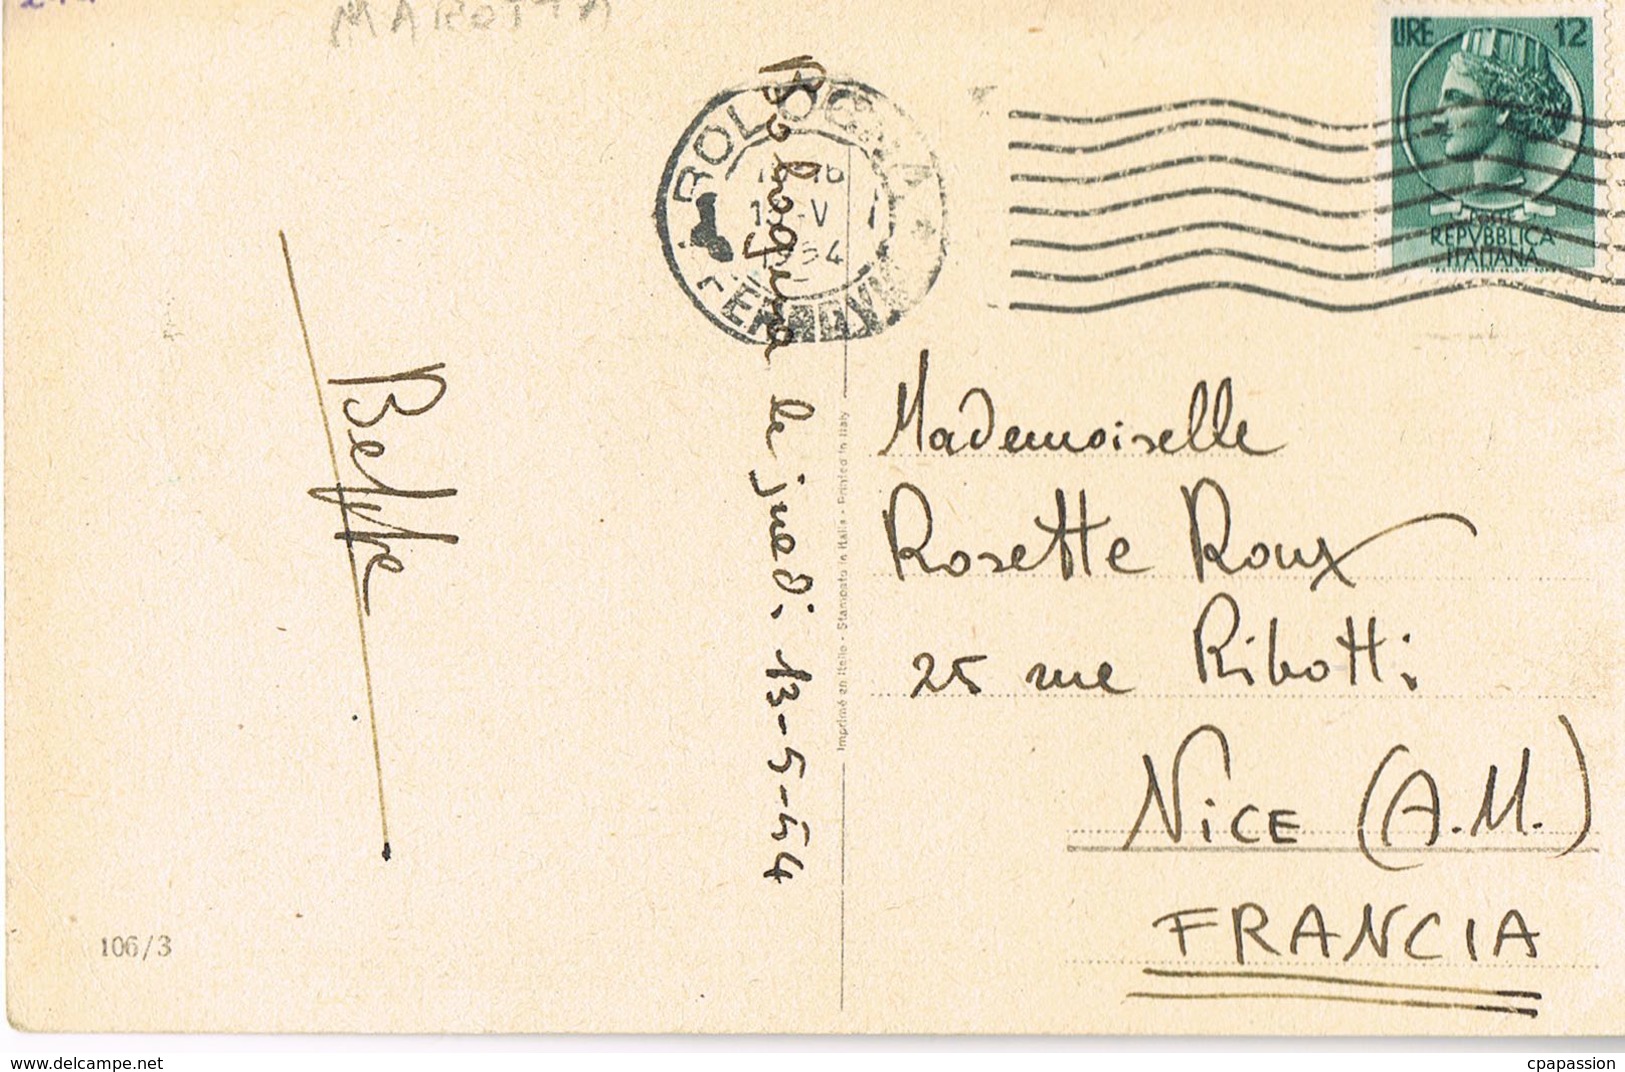 MAROTTA
LIRE 12
POSTE
REPVBBLICA
ITALIANA
BOLOGNA
FERROVIA
Bologna le jeudi 13-5-54
Mademoiselle
Rosette Roux
25 rue Ribotti
NICE (A.M.)
FRANCIA
Imprimé en Italie - Stampato in Italia - Printed in Italy
106/3
www.delcampe.net
cpapassion